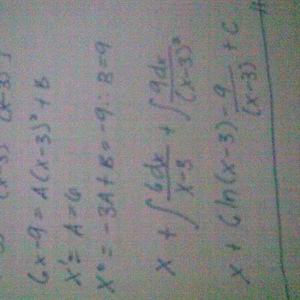 6x-9 = A(x-3)² + B
x¹ = A = 6
x⁰ = -3A + B = -9 ∴ B = 9
x + ∫ 6dx/(x-3) + ∫ 9dx/(x-3)²
x + 6 ln(x-3) - 9/(x-3) + C